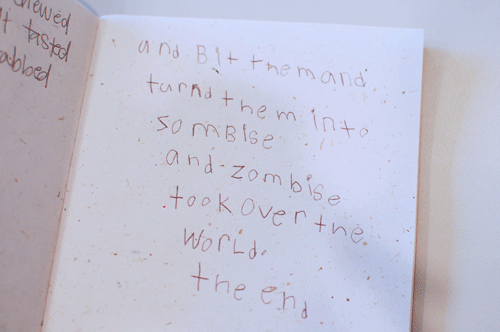 hewed
t tasted
abbed
and Bit them and
turnd them into
somBise
and zombise
took over the
WorLd.
the end